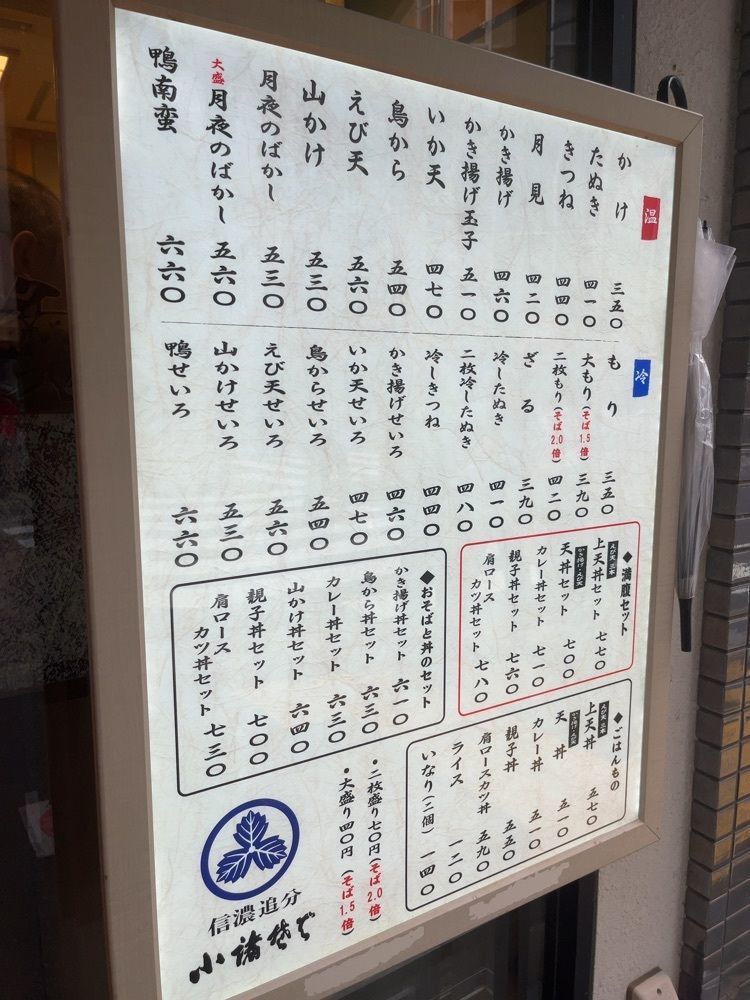 温
かけ 三五〇
たぬき 四一〇
きつね 四四〇
月見 四二〇
かき揚げ 四六〇
かき揚げ玉子 五一〇
いか天 四七〇
鳥から 五四〇
えび天 五六〇
山かけ 五三〇
月夜のばかし 五三〇
大盛月夜のばかし 五六〇
鴨南蛮 六六〇
冷
もり 三五〇
大もり(そば1.5倍) 三九〇
二枚もり(そば2.0倍) 四二〇
ざる 三九〇
冷したぬき 四一〇
二枚冷したぬき 四八〇
冷しきつね 四四〇
かき揚げせいろ 四六〇
いか天せいろ 四七〇
鳥からせいろ 五四〇
えび天せいろ 五六〇
山かけせいろ 五三〇
鴨せいろ 六六〇
◆満腹セット
えび天 二本
上天丼セット 七七〇
かき揚げ・えび天
天丼セット 七〇〇
カレー丼セット 七一〇
親子丼セット 七六〇
肩ロース
カツ丼セット 七八〇
◆おそばと丼のセット
かき揚げ丼セット 六一〇
鳥から丼セット 六三〇
カレー丼セット 六三〇
山かけ丼セット 六四〇
親子丼セット 七〇〇
肩ロース
カツ丼セット 七三〇
◆ごはんもの
えび天 二本
上天丼 五七〇
天丼 五一〇
カレー丼 五一〇
親子丼 五五〇
肩ロースカツ丼 五九〇
ライス 一二〇
いなり(二個) 一四〇
・二枚盛り七〇円(そば2.0倍)
・大盛り四〇円(そば1.5倍)
信濃追分
小諸そば